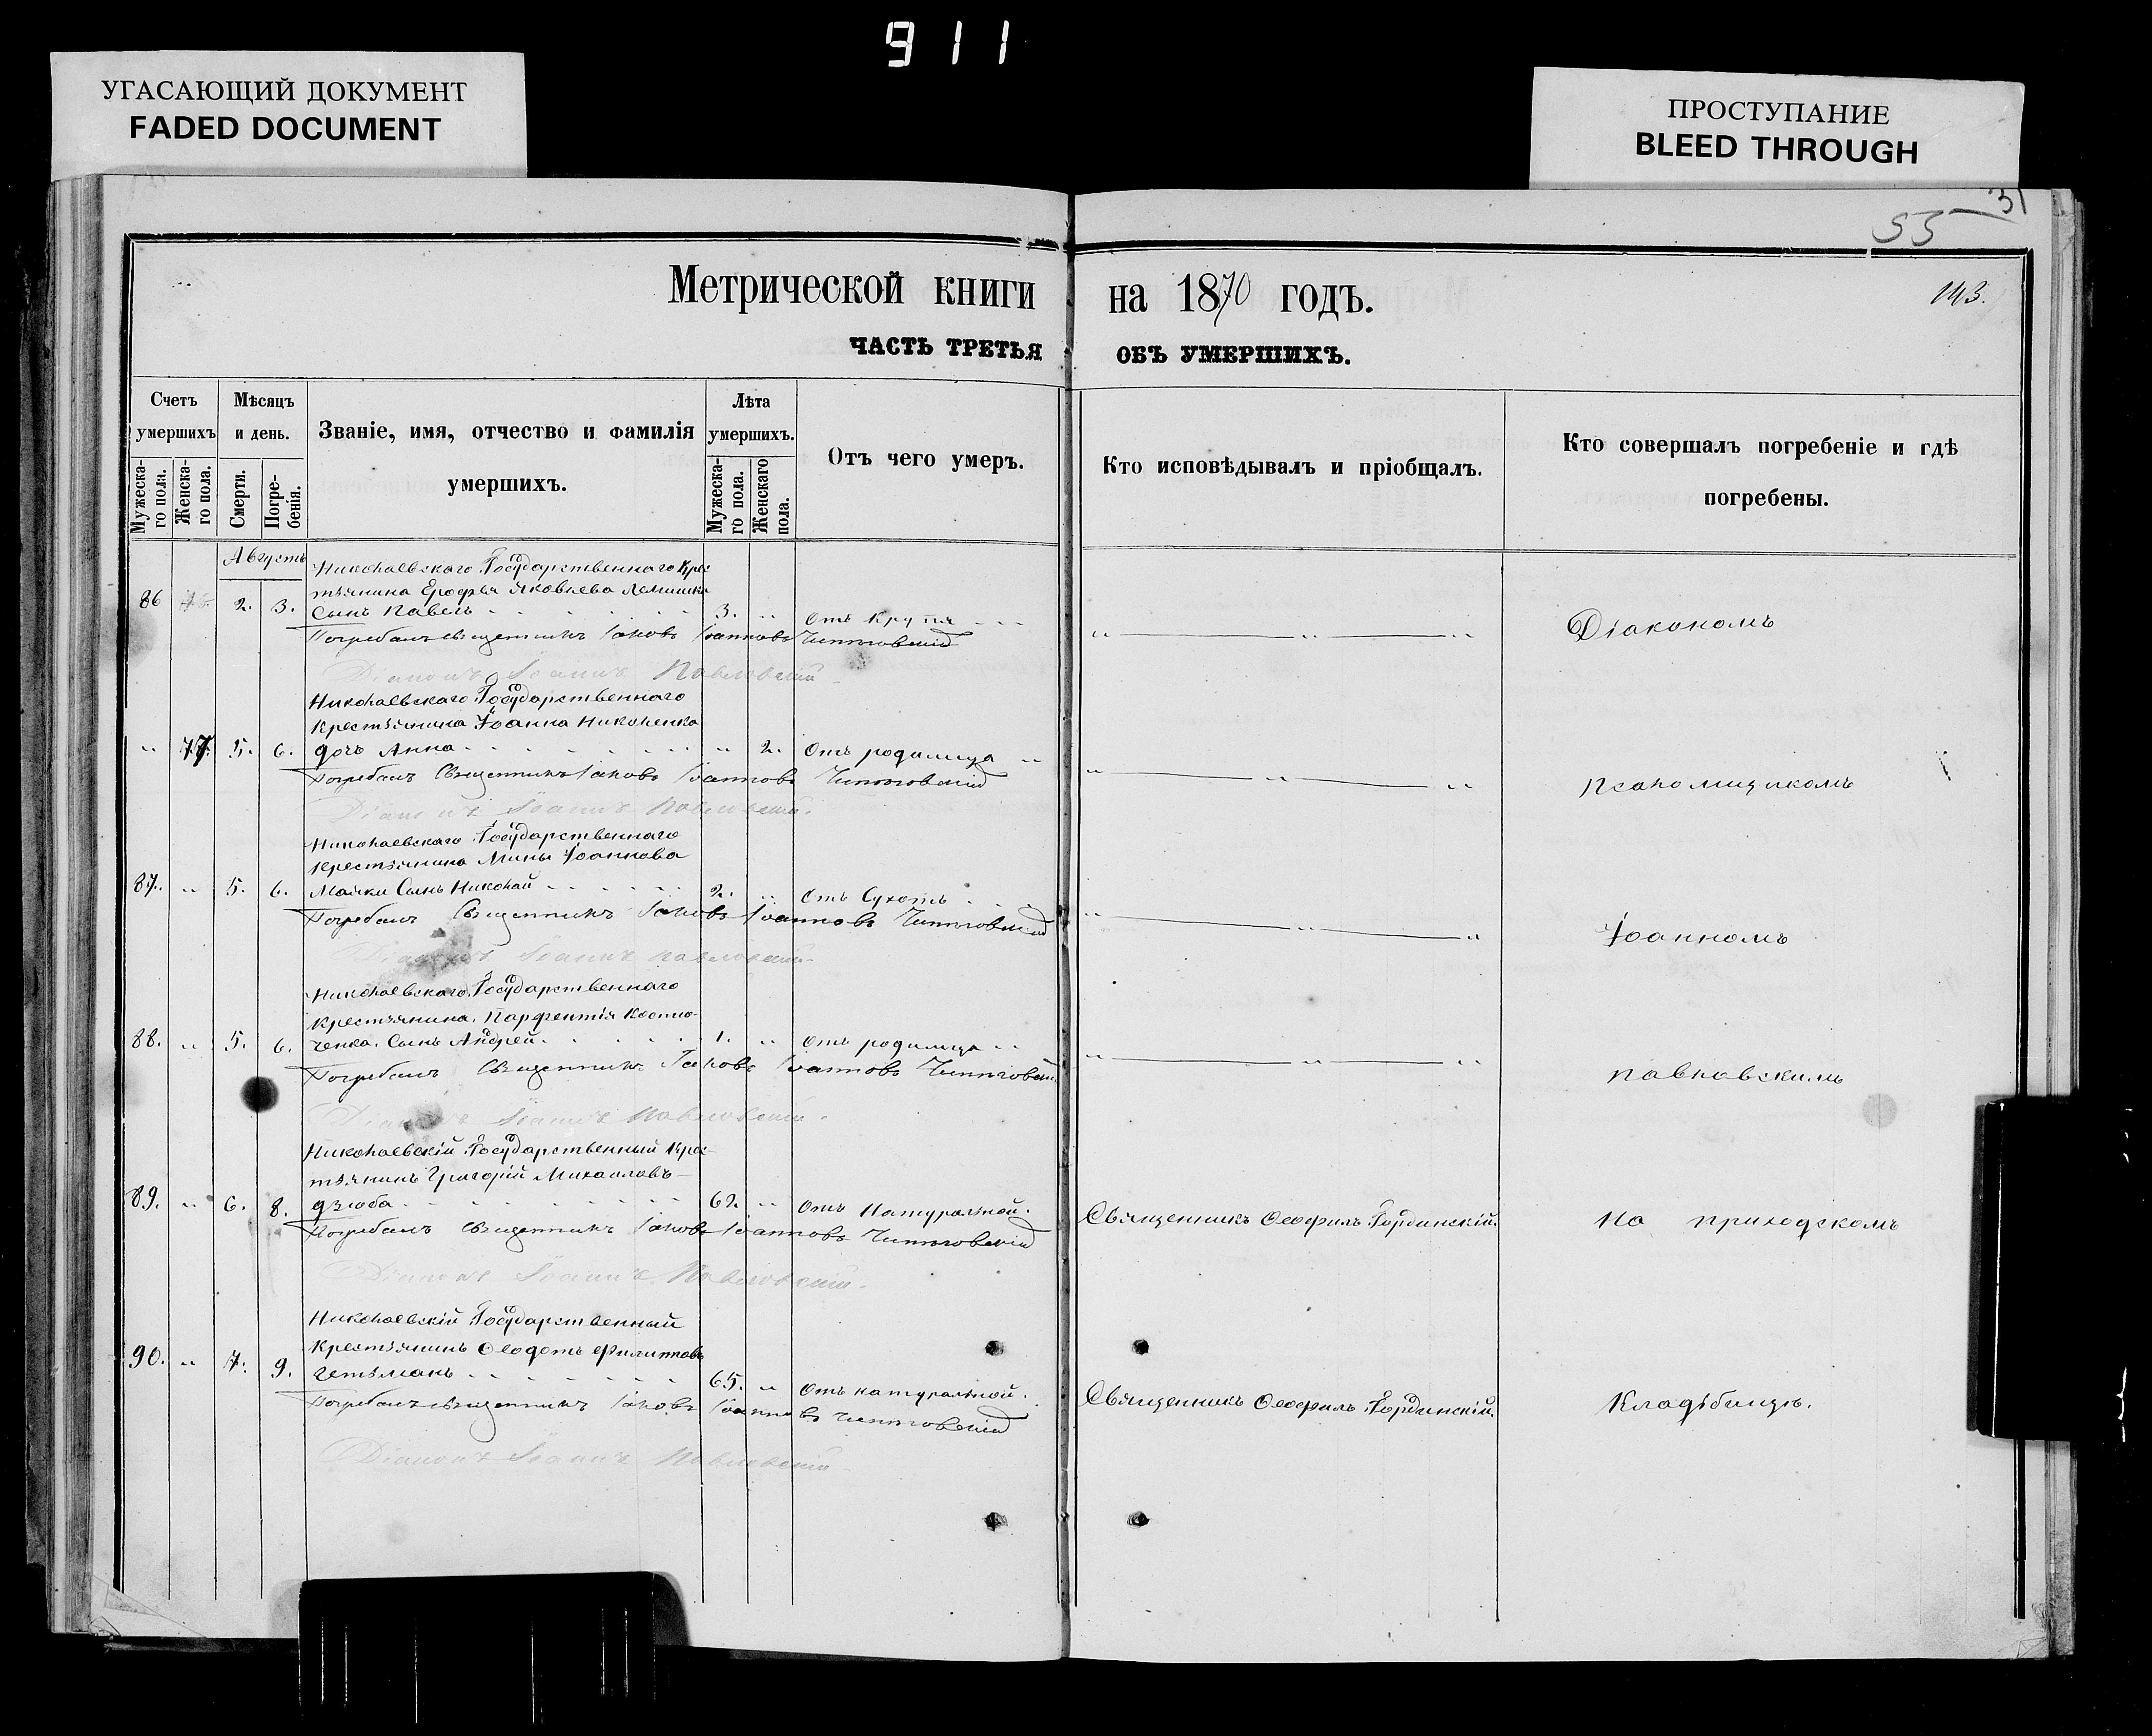 911
УГАСАЮЩИЙ ДОКУМЕНТ
FADED DOCUMENT
ПРОСТУПАНИЕ
BLEED THROUGH
31
55
Метрической книги на 1870 годъ.
143.
ЧАСТЬ ТРЕТЬЯ ОБЪ УМЕРШИХЪ.
Счетъ умершихъ
Мужеска-го пола.
Женска-го пола.
Мѣсяцъ и день.
Смерти.
Погре-бенія.
Званіе, имя, отчество и фамилія
умершихъ.
Лѣта умершихъ.
Мужеска-го пола.
Женскаго пола.
Отъ чего умеръ.
Кто исповѣдывалъ и пріобщалъ.
Кто совершалъ погребеніе и гдѣ
погребены.
Августъ
Николаевскаго Государственнаго Крес
тьянина Ерофея Яковлева
86 2. 3. Сынъ Павелъ 3. " Отъ Крупа
Погребалъ Священникъ Іаковъ Іоанновъ
Діаконъ Іоаннъ Павловскій
Діакономъ
Николаевскаго Государственнаго
Крестьянина Іоанна Николенка
" 77. 5. 6. дочь Анна " 2. Отъ родимца
Погребалъ Священникъ Іаковъ Іоанновъ
Діаконъ Іоаннъ Павловскій.
псаломщикомъ
Николаевскаго Государственнаго
Крестьянина Мины Іоаннова
87. " 5. 6. Сынъ Николай 2. " Отъ Сухотъ
Погребалъ Священникъ Іаковъ Іоанновъ
Діаконъ Іоаннъ Павловскій
Іоанномъ
Николаевскаго Государственнаго
Крестьянина Парфентія Костю-
88. " 5. 6. ченка Сынъ Андрей 1. " Отъ родимца
Погребалъ Священникъ Іаковъ Іоанновъ
Діаконъ Іоаннъ Павловскій.
павловскимъ
Николаевскій Государственный Крес-
тьянинъ Григорій Михаиловъ
89. " 6. 8. дзюба 62. " Отъ Натуральной. Священникъ Ѳеофилъ Гординскій. На приходскомъ
Погребалъ Священникъ Іаковъ Іоанновъ
Діаконъ Іоаннъ Павловскій.
Николаевскій Государственный
Крестьянинъ Ѳеодотъ Филипповъ
90. " 7. 9. гетьманъ 65. " Отъ натуральной. Священникъ Ѳеофилъ Гординскій. Кладбищѣ.
Погребалъ Священникъ Іаковъ Іоанновъ
Діаконъ Іоаннъ Павловскій